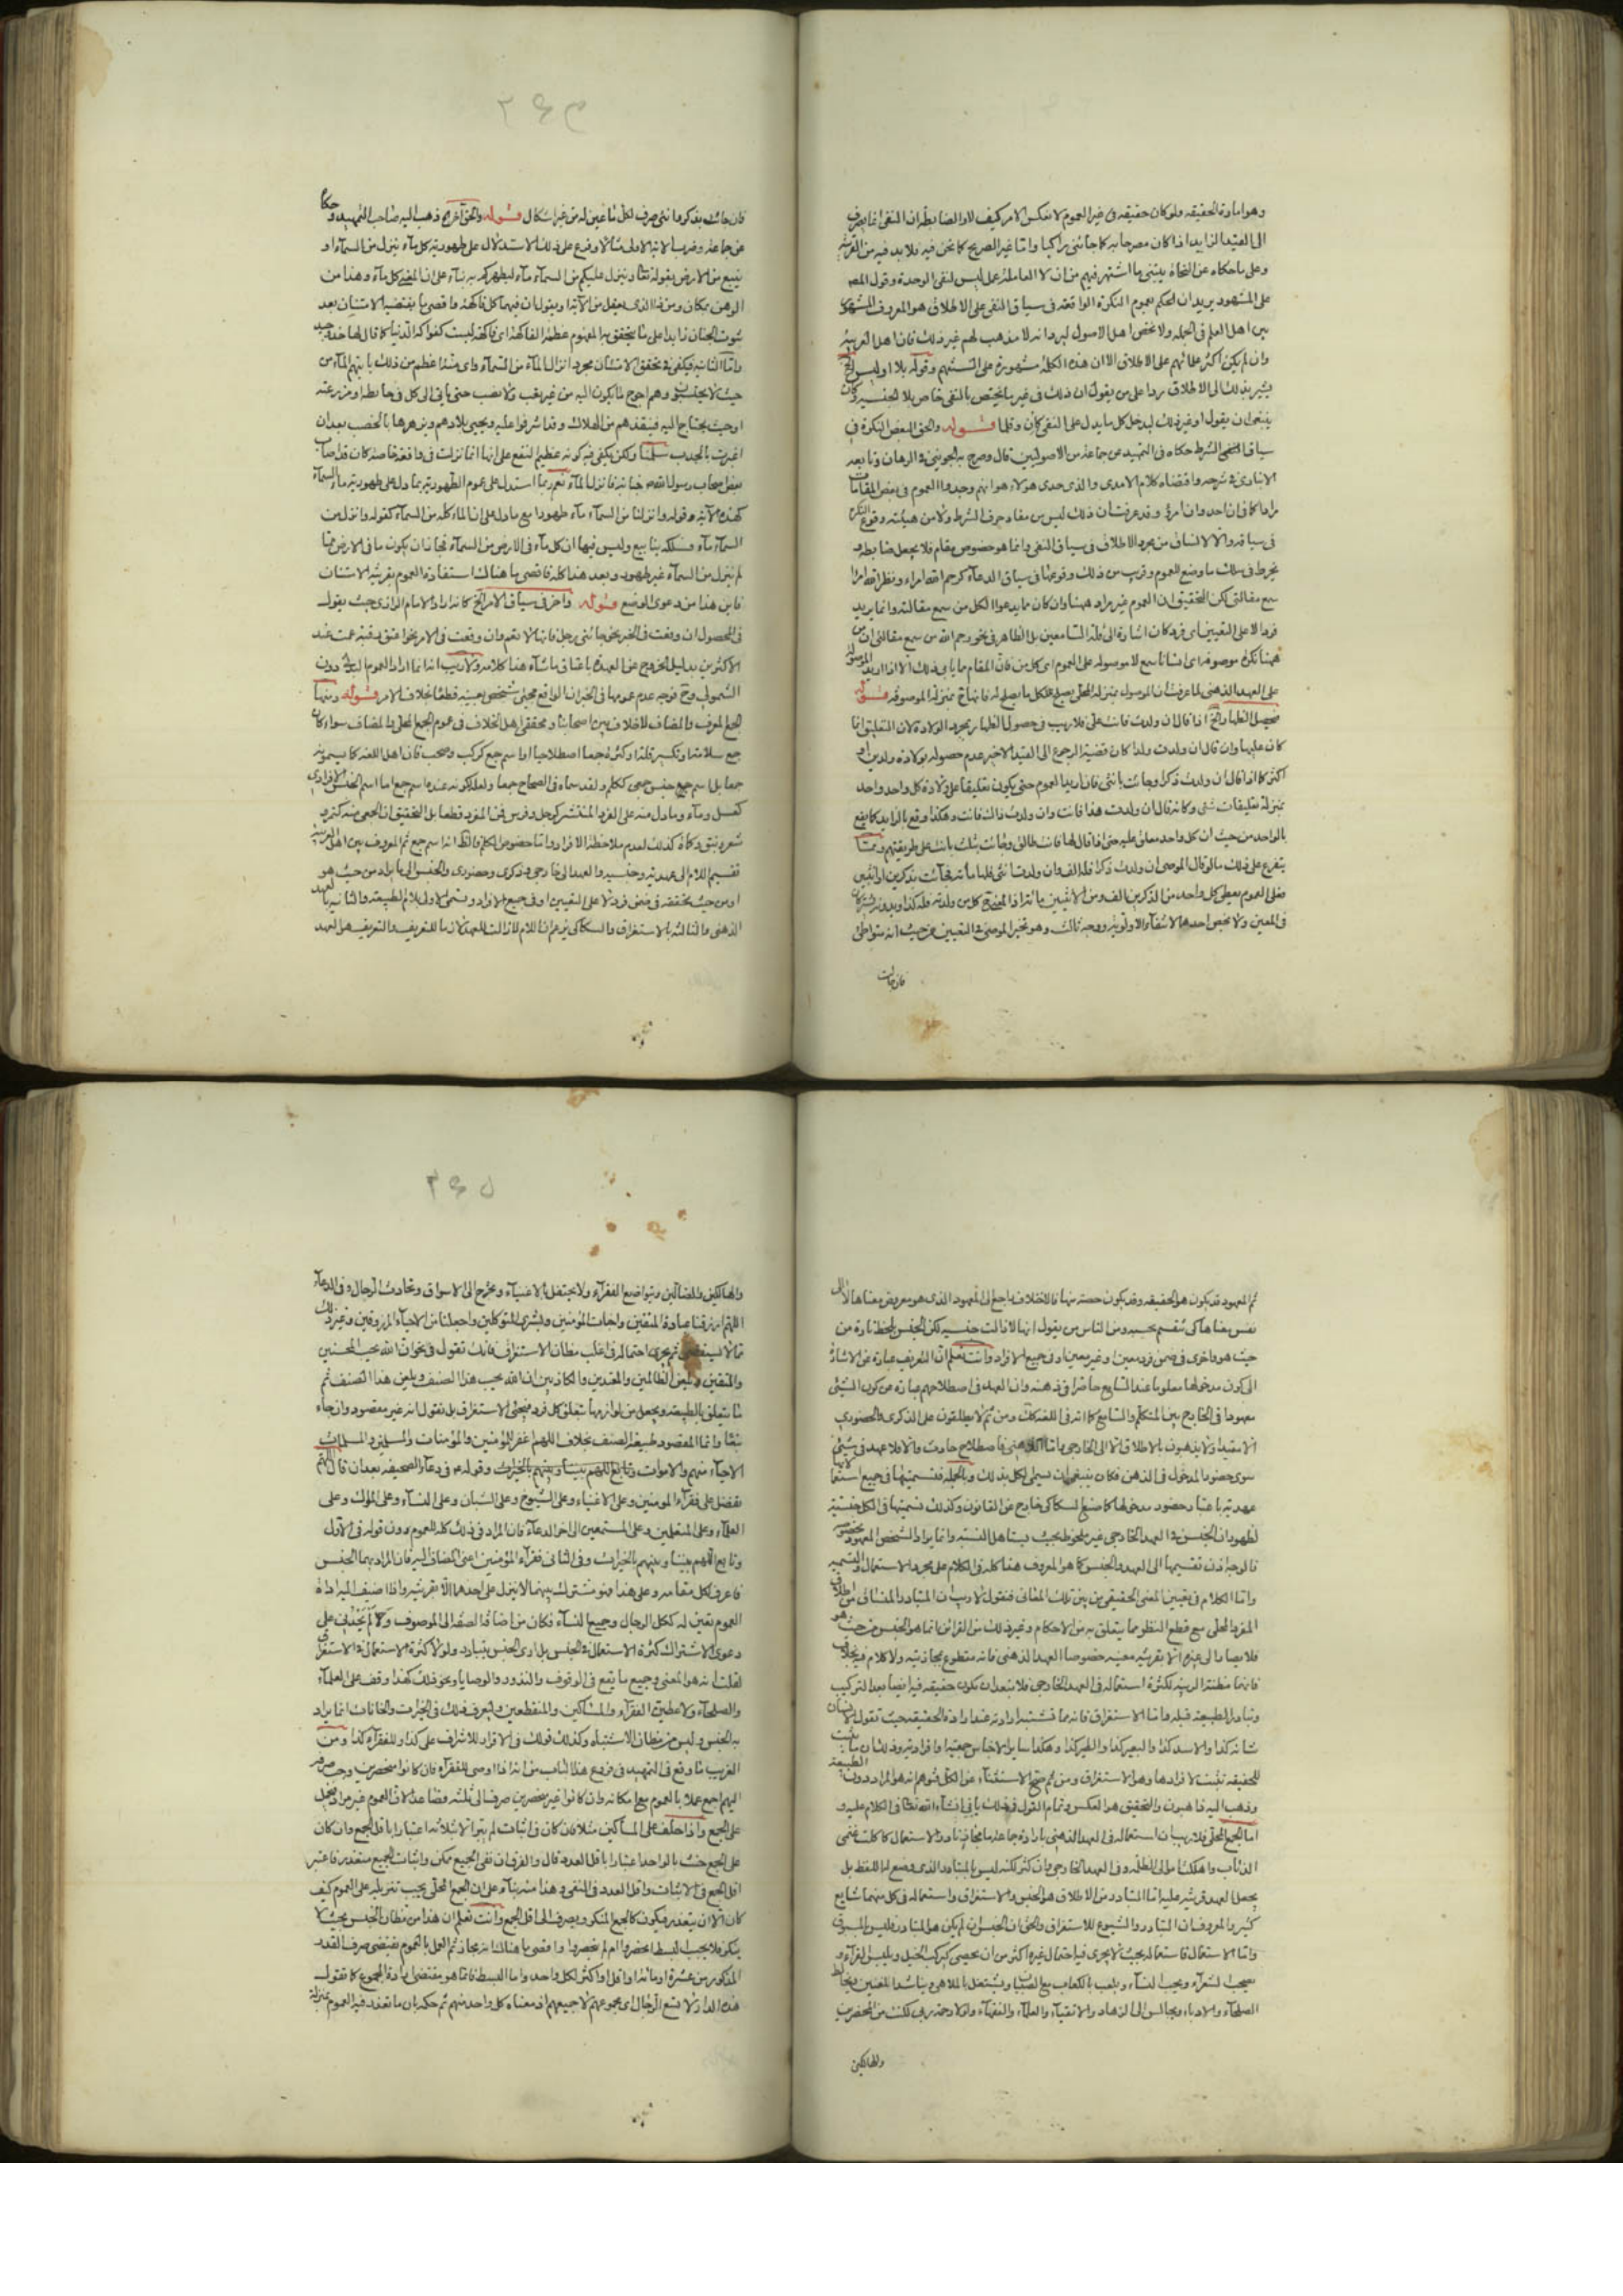 وهو امارة الحقيقه ولو كان حقيقه فى غير العموم لانعكس الامر كيف لا والضابط ان النفى انما يصرف
الى القيد الزايد اذا كان مصرحا به كما جائنى راكبا واما غير الصريح كما نحن فيه فلا بد فيه من القرينه
وعلى ما حكاه عن النحاة يبتنى ما اشتهر فيهم من ان لا العاملة عمل ليس لنفى الوحدة وقول المصـ
على المشهور يريد ان الحكم بعموم النكرة الواقعه فى سياق النفى على الاطلاق هو المعروف المشهور
بين اهل العلم فى الجمله ولا يخص اهل الاصول ليرد انه لا مذهب لهم غير ذلك فان اهل العربيه
وان لم يكن اكثر علمائهم على الاطلاق الا ان هذه الكلمة مشهورة على السنتهم وقوله بلا او ليس الخ
يشير بذلك الى الاطلاق ردا على من يقول ان ذلك فى غير ما يختص بالنفى خاص بلا الجنسيه وكان
ينبغى ان يقول او غير ذلك ليدخل كل ما يدل على النفى كان وقلما قوله والحق البعض النكرة فى
سياق الشرط حكاه فى التمهيد عن جماعة من الاصوليين قال وصرح به الجوينى فى البرهان وتابعه
الانبارى فى شرحه واقتضاه كلام الامدى والذى حدى هؤلاء هو انهم وجدوا العموم فى بعض المقامات
مرادا كما فى ان احد وان امرؤ وقد عرفت ان ذلك ليس من مفاد حرف الشرط ولا من هيئته وقوع النكرة
فى سياقه والا لانساق من مجرد الاطلاق فى سياق النفى وانما هو خصوص مقام فلا يجعل ضابطه و
يخرط فى سلك ما وضع للعموم وقريب من ذلك وقوعها فى سياق الدعآء كرحم الله امراء ونظر الله امرا
سمع مقالتى لكن التحقيق ان العموم غير مراد هيهنا وان كان مما يدعو الكل من سمع مقالته وانما يريد
فردا لا على التعيين اى فرد كان اشارة الى قلة السامعين بل الظاهر فى نحو رحم الله من سمع مقالتى ان من
هيهنا نكرة موصوفة اى انسانا سمع لا موصوله على العموم اى كل من فان المقام مما يابى ذلك الا اذا اريد الموصوله
على العهد الذهنى لما عرفت ان الموصول بمنزلة المحلى يصلح لكل ما يصلح له فانها ح بمنزلة الموصوفه قوله
فيحصل الظهار الخ اذا قال ان ولدت فانت على فلا ريب فى حصول الظهار بمجرد الولادة لان التعليق انما
كان عليها وان قال ان ولدت ولدا كان قضية الرجوع الى القيد الاخير عدم حصوله بولادة ولدين او
اكثر كما اذا قال ان ولدت ذكرا وجائت بانثى فان اريد العموم حتى يكون تعليقا على ولادة كل واحد واحد
بمنزلة تعليقات شتى وكانه قال ان ولدت هذا فانت وان ولدت ذاك فانت وهكذا وقع بالزايد كما يقع
بالواحد من حيث ان كل واحد معلق عليه حتى اذا قال لها فانت طالق وجائت بثلث بانت على طريقتهم ومما
يتفرع على ذلك ما لو قال الموصى ان ولدت ذكرا فله الف وان ولدت انثى فلها مائة فجآئت بذكرين او انثيين
فعلى العموم يعطى كل واحد من الذكرين الف ومن الانثيين مائة اذ المعنى ح كل من ولدته فله كذا وبدونه يشتركان
فى المعين ولا يخص احدهما لانتفآء الاولويه ووجه ثالث وهو تخير الموصى فى التعيين من حيث انه متواطئ
فان جائت
فان جائت بذكر وانثى صرف لكل ما عين له من غير اشكال قوله والحق اخرون ذهب اليه صاحب التمهيد وحكاه
عن جماعة وضرب الاية الاولى مثالا وفرع على ذلك الاستدلال على طهورية كل مآء ينزل من السمآء او
ينبع من الارض بقوله تعالى وينزل عليكم من السمآء مآء ليطهركم به بنآء على ان المعنى كل مآء وهذا من
الوهن بمكان ومن ذا الذى يعقل من الاية او يقول ان فيهما كل فاكهة واقصى ما يقتضيه الامتنان بعد
ثبوت الجنان زايدا على ما يتحقق به المفهوم عظمة الفاكهة اى فاكهة ليست كفواكه الدنيا كما قال لها خذ
واما الثانيه فيكفى فى تحقق الامتنان مجرد انزال المآء من السمآء واى منة اعظم من ذلك ياتيهم المآء من
حيث لا يحتسبون وهم احوج ما يكون اليه من غير تعب ولا نصب حتى ياتى الى كل فى حائطه او مزرعته
او حيث يحتاج اليه فينقذهم من الهلاك وقد اشرفوا عليه ويحيى بلادهم ويزهرها بالخصب بعد ان
اغبرت بالجدب سلمنا ولكن يكفى فيه كونه عظيم النفع على انها انما نزلت فى واقعة خاصه كان قد اصاب
بعض اصحاب رسول الله ص جنابة فانزل المآء نعم ربما استدل على عموم الطهورية بما دل على طهورية ماء السمآء
كهذه الاية وقوله وانزلنا من السمآء مآء طهورا مع ما دل على ان الماء كله من السمآء كقوله وانزل من
السمآء مآء فسلكه ينابيع وليس فيها ان كل مآء فى الارض من السمآء فجاز ان يكون ما فى الارض مما
لم ينزل من السمآء غير طهور وبعد هذا كله فاقصى ما هناك استفادة العموم بقرينة الامتنان
فاين هذا من دعوى الوضع قوله واخر فى سياق الامر الخ كانه اراد الامام الرازى حيث يقول
فى المحصول ان وقعت فى الخبر نحو جائنى رجل فانها لا تعم وان وقعت فى الامر نحو اعتق رقبة عمت عند
الاكثرين بدليل الخروج عن العهدة باعتاق ما شآء هذا كلامه ولا ريب انه انما اراد العموم البدلى دون
الشمولى وح فوجه عدم عمومها فى الخبر ان الواقع مجئ شخص بعينه قطعا بخلاف الامر قوله ومنها
الجمع المعرف والمضاف لا خلاف بين اصحابنا ومحققى اهل الخلاف فى عموم الجمع المحلى والمضاف سواء كان
جمع سلامة او تكسير قلة او كثرة جمعا اصطلاحيا او اسم جمع كركب وصحب فان اهل اللغه كما يسمونه
جمعا بل اسم جمع جنس جمعى ككلم ولقد سماه فى الصحاح جمعا ولعله لكونه عنده اسم جمع اما اسم الجنس الافرادى
كعسل ومآء وما دل منه على الفرد المنتشر كرجل وفرس فمن المفرد قطعا بل التحقيق ان الجمعى منه كتمر و
شعير ونبق وكماة كذلك لعدم ملاحظة الافراد واما خصوص الكلم فالظ انه اسم جمع ثم المعروف بين اهل العربيه
تقسيم اللام الى عهديه وجنسيه والعهد الى خارجى وذكرى وحضورى والجنس الى ما يراد من حيث هو
او من حيث تحققه فى ضمن فرد لا على التعيين او فى جميع الافراد وتسمى الاولى بلام الطبيعه والثانيه بالعهد
الذهنى والثالثه بالاستغراق والسكاكى يزعم ان اللام لا زالت للعهد لانها للتعريف والتعريف هو العهد
ثم المعهود قد يكون هو الحقيقه وقد يكون حصته منها فالاختلاف راجع الى المعهود الذى هو معروض معناها لا الى
نفس معناها كى تنقسم بحسبه ومن الناس من يقول انها لا زالت جنسيه لكن الجنس يلحظ تارة من
حيث هو واخرى فى ضمن فرد معين او غير معين او فى جميع الافراد وانت تعلم ان التعريف عبارة عن الاشارة
الى كون مدخولها معلوما عند السامع حاضرا فى ذهنه وان العهد فى اصطلاحهم عبارة عن كون الشيئ
معهودا فى الخارج بين المتكلم والسامع كما انه فى اللغة كك ومن ثم لا يطلقون على الذكرى والحضورى
الا مقيدا ولا يذهبون بالاطلاق الا الى الخارجى واما الذهنى فاصطلاح حادث والا فلا عهد فى شيئ
سوى حضور المدخول فى الذهن فكان ينبغى ان يسمى الكل بذلك وبالجمله فتسميتها فى جميع استعمالاتها
عهديه باعتبار حضور مدخولها كما صنع السكاكى خارج عن القانون وكذلك تسميتها فى الكل جنسية
لظهور ان الجنس فى العهد الخارجى غير ملحوظ بحيث يستاهل النسبه وانما يراد الشخص المعهود بخصوصه
فالوجه اذن تقسيمها الى العهد والجنس كما هو المعروف هذا كله فى الكلام على مجرد الاستعمال والتسميه
واما الكلام فى تعيين المعنى الحقيقى من بين تلك المعانى فنقول لا ريب ان المتبادر المنساق من اطلاق
المفرد المحلى مع قطع النظر عما يتعلق به من الاحكام وغير ذلك من القرائن انما هو الجنس من حيث هو
فلا يصار الى غيره الا بقرينه معينه خصوصا العهد الذهنى فانه مقطوع بمجازيته ولا كلام فيه بخلاف
فانهما مظنة الريبه لكثرة استعماله فى العهد الخارجى فلا يبعد ان يكون حقيقه فيه ايضا بعد التركيب
وتبادر الطبيعه قبله واما الاستغراق فانه مما قد تشتبه ارادته عند ارادة الحقيقه حيث تقول الانسان
شانه كذا والاسد كذا والبعير كذا والطير كذا وهكذا ساير الاجناس جمعيه او افراديه وذلك ان ما يثبت
للحقيقه يثبت لافرادها وهو الاستغراق ومن ثم صح الاستثنآء عن الكل فتوهم انه هو المراد دون الطبيعه
وذهب اليه ذاهبون والتحقيق هو العكس وتمام القول فى ذلك ياتى انشآء الله تعالى فى الكلام عليه و
اما الجمع المحلى فلا ريب ان استعماله فى العهد الذهنى بارادة جماعة ما مجاز نادر الاستعمال كما كلت غنمى
الذئاب واهلكت الظلمة وفى العهد الخارجى وان كثر لكنه ليس بالمتبادر الذى وضع له اللفظ بل
يجعل العهد قرينه عليه انما المتبادر من الاطلاق هو الجنس والاستغراق واستعماله فى كل منهما شايع
كثير والمعروف ان المتبادر والشيوع للاستغراق والحق ان الجنس ان لم يكن هو المتبادر فليس المسبوق
واما الاستعمال فاستعماله بحيث لا يجرى فيه احتمال غيره اكثر من ان يحصى كيركب الخيل ويلبس الفرآء و
يصحب الشعرآء ويحب النسآء ويلعب بالكعاب مع الصبيان ويشتغل بالملاهى ويناشد المغنين ويخالط
الصلحآء والادباء ويجالس الى الزهاد والاتقيآء والعلمآء والفقهآء ولولا رحمة ربى لكنت من المحضرين
والهالكين
والهالكين والضآلين ويتواضع الفقرآء ولا يحتفل بالاغنيآء ويخرج الى الاسواق ويحادث الرجال وفى الدعآء
اللهم ارزقنا عبادة المتقين واخبات المؤمنين وبشرى المتوكلين واجعلنا من الاحيآء المرزوقين وغير ذلك
مما لا ثم يجرى احتماله فى اغلب مظان الاستغراق فانك تقول فى نحو ان الله يحب المحسنين
والمتقين ويبغض الظالمين والمعتدين والكاذبين ان الله يحب هذا الصنف ويلعن هذا الصنف ثم
ما يتعلق بالطبيعه ويجعل من لوازمها يتعلق بكل فرد فيجئ الاستغراق بل نقول انه غير مقصود وان جآء
تبعا وانما المقصود طبيعة الصنف بخلاف اللهم اغفر للمؤمنين والمؤمنات والمسلمين والمسلمات
الاحيآء منهم والاموات وتابع اللهم بيننا وبينهم بالخيرات وقوله ع فى دعآء الصحيفه بعد ان قال اللهم
تفضل على فقرآء المومنين وعلى الاغنيآء وعلى الشيوخ وعلى الشبان وعلى النسآء وعلى الملوك وعلى
العلمآء وعلى المتعلمين وعلى المستمعين الى اخر الدعآء فان المراد فى ذلك كله العموم دون قوله فى الاول
وتابع اللهم بيننا وبينهم بالخيرات وفى الثانى فقرآء المؤمنين اعنى المضاف اليه فان المراد بهما الجنس
فاعرف لكل مقامه وعلى هذا فهو مشترك بينهما لا ينزل على احدهما الا بقرينة واذا اضيف اليه اداة
العموم تعين له ككل الرجال وجميع النسآء فكان من اضافة الصفه الى الموصوف ولا لم تجدنى على
دعوى الاشتراك كثرة الاستعمال فى الجنس بل ارى الجنس يتبادر ولولا كثرة الاستعمال فى الاستغراق
لقلت انه هو المعنى وجميع ما يقع فى الوقوف والنذور والوصايا ونحو ذلك كهذا وقف على العلمآء
والصلحآء ولاعطين الفقرآء والمساكين والمنقطعين وليصرف ذلك فى الخيرات والخانات انما يراد
به الجنس وليس من مظان الاشتباه وكذلك قولك فى الاقرار للاشراف على كذا وللفقرآء كذا ومن
الغريب ما وقع فى التمهيد فى فروع هذا الباب من انه اذا اوصى للفقرآء فان كانوا منحصرين وجب صرفه
اليهم اجمع عملا بالعموم مع امكانه وان كانوا غير منحصرين صرف الى ثلثه فصاعدا لان العموم غير مراد فيحمل
على الجمع واذا حلف على المساكين مثلا فان كان فى اثبات لم يبر الا بثلاثه اعتبارا باقل الجمع وان كان
على الجمع حنث بالواحد اعتبارا باقل العدد قال والفرق ان نفى الجميع ممكن واثبات الجميع متعذر فاعتبر
اقل الجمع فى الاثبات واقل العدد فى النفى وهذا منه بنآء على ان الجمع المحلى يجب تنزيله على العموم كيف
كان الا ان يتعذر فيكون كالجمع المنكر ويصرف الى اقل الجمع وانت تعلم ان هذا من مظان الجنس بحيث لا
ينكر فلا يجب البسط انحصروا ام لم ينحصروا واقصى ما هناك انه مجاز ثم العمل بالعموم يقتضى صرف القدر
المذكور من عشرة او مائة او اقل او اكثر لكل واحد واما البسط فانما هو مقتضى ارادة المجموع كما تقول
هذه الدار لا تسع الرجال اى مجموعهم لا جميعهم اذ معناه كل واحد منهم ثم حكمه بان ما تعذر فيه العموم بمنزلة